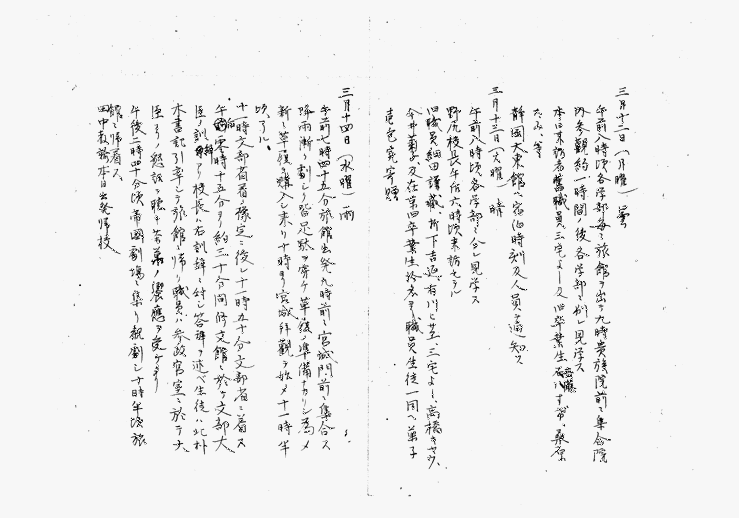 三月十二日(月曜) 曇
午前八時頃各学部毎ニ旅館ヲ出デ九時貴族院前ニ集合院
外参観約一時間ノ後各学部ニ別レ見学ス
本日来訪者旧職員三宅よし又旧卒業生
たみ等
静岡大東館ヘ宿泊時刻及人員ヲ通知ス
三月十三日(火曜) 晴
午前八時頃各学部ニ分レ見学ス
野尻校長午后六時頃来訪セラル
旧職員細田謙蔵、折下吉延、有川ひさゑ、三宅よし、高橋きやう、
今井菊子及在京第四卒業生ヨリ職員生徒一同ヘ菓子
壱包宛寄贈
三月十四日(水曜) 雨
午前七時四十五分旅館出発九時前ニ宮城門前ニ集合ス
降雨漸ク劇シク皆足駄ヲ穿ケ草履ノ準備ナカリシ為メ
新ニ草履ヲ購入シ来リ十時ヨリ宮城拝観ヲ始メ十一時半
頃了ル、
十一時文部省着ノ豫定ニ後レ十一時五十分文部省ニ着ス
午后零時十五分ヨリ約三十分間修文館ニ於テ文部大
臣ノ訓辞アリ校長ハ右訓辞ニ対シ答辞ヲ述ベ生徒ハ北村
木書記引率シテ旅館ニ帰リ職員ハ参政官室ニ於テ大
臣ヨリ懇話ヲ聴キ弁当ノ饗應ヲ受ケタリ
午後二時四十分頃帝國劇場ニ集リ観劇シ十時半頃旅
館ニ帰着ス、
田中教諭本日出発帰校